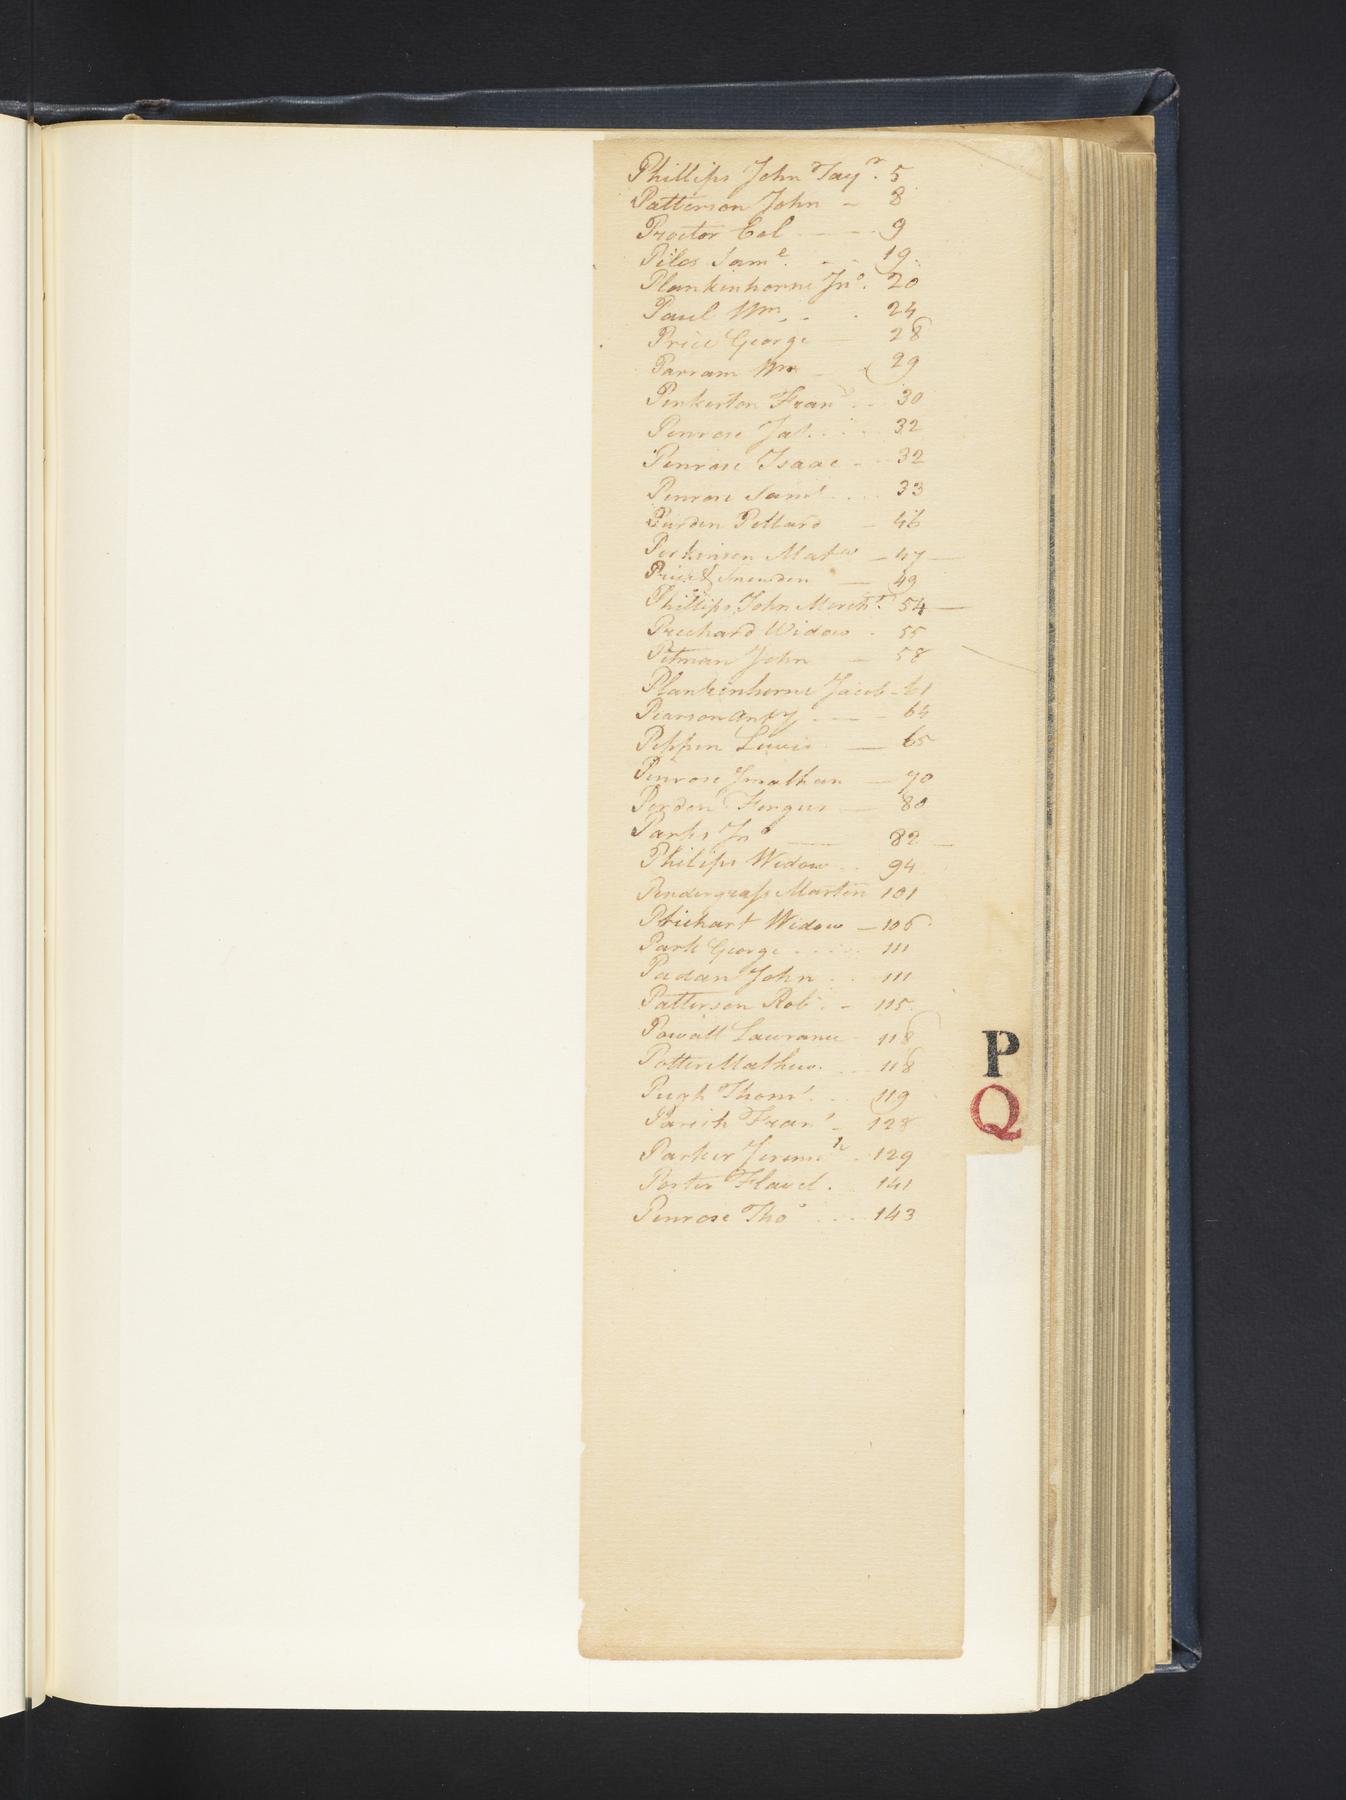 Phillips John Tayr. 5
Patterson John - 8
Proctor Col - - - 9
Piles Saml. - - 19
Plankinhorne Jno. 20
Paul Wm. . . 24
Price George - 28
Parram Wm - 29
Penkerton Fran . . 30
Penrose Jas. . . . 32
Penrose Isaac - - 32
Penrose Saml . . . 33
Purden Pettard - 46
Perkinson Matw - 47 -
Price & Snowden - 49
Phillips John Mercht. 54 -
Prechard Widow . 55
Pitman John - 58
Plankinhorne Jacob - 61
Pearson Anty . - - 64
Peppen Lewis - 65
Penrose Jonathan - 70
Perden Fergus - 80
Parks Jno - 82 -
Philips Widow . . 94
Pendergrass Martin 101
Prichart Widow - 106
Park George . . . . 111
Padan John . . 111
Patterson Rob . - 115
Powall Lawrance - 118
Potter Mathew. . . 118
Pugh Thoms . . . 119
Parish Frans - 128
Parker Jeremh . 129
Porter Flavel . . 141
Penrose Thos . . . 143
P
Q